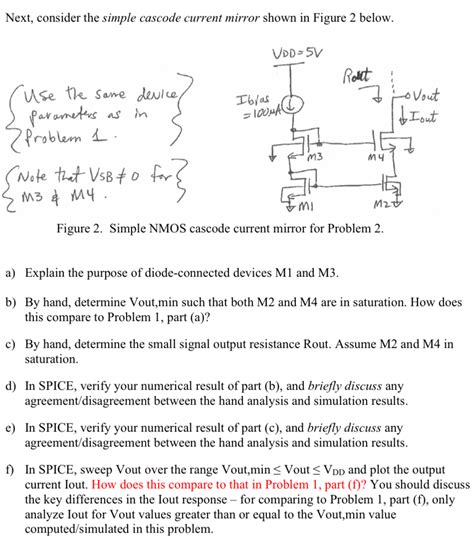 Next, consider the simple cascode current mirror shown in Figure 2 below.
VDD=5V
Rout
Vout
Iout
Ibias
=100μA
Use the same device
parameters as in
Problem 1.
M3
M4
Note that VSB≠0 for
M3 & M4.
M1
M2
Figure 2. Simple NMOS cascode current mirror for Problem 2.
a) Explain the purpose of diode-connected devices M1 and M3.
b) By hand, determine Vout,min such that both M2 and M4 are in saturation. How does
this compare to Problem 1, part (a)?
c) By hand, determine the small signal output resistance Rout. Assume M2 and M4 in
saturation.
d) In SPICE, verify your numerical result of part (b), and briefly discuss any
agreement/disagreement between the hand analysis and simulation results.
e) In SPICE, verify your numerical result of part (c), and briefly discuss any
agreement/disagreement between the hand analysis and simulation results.
f) In SPICE, sweep Vout over the range Vout,min ≤ Vout ≤ VDD and plot the output
current Iout. How does this compare to that in Problem 1, part (f)? You should discuss
the key differences in the Iout response – for comparing to Problem 1, part (f), only
analyze Iout for Vout values greater than or equal to the Vout,min value
computed/simulated in this problem.